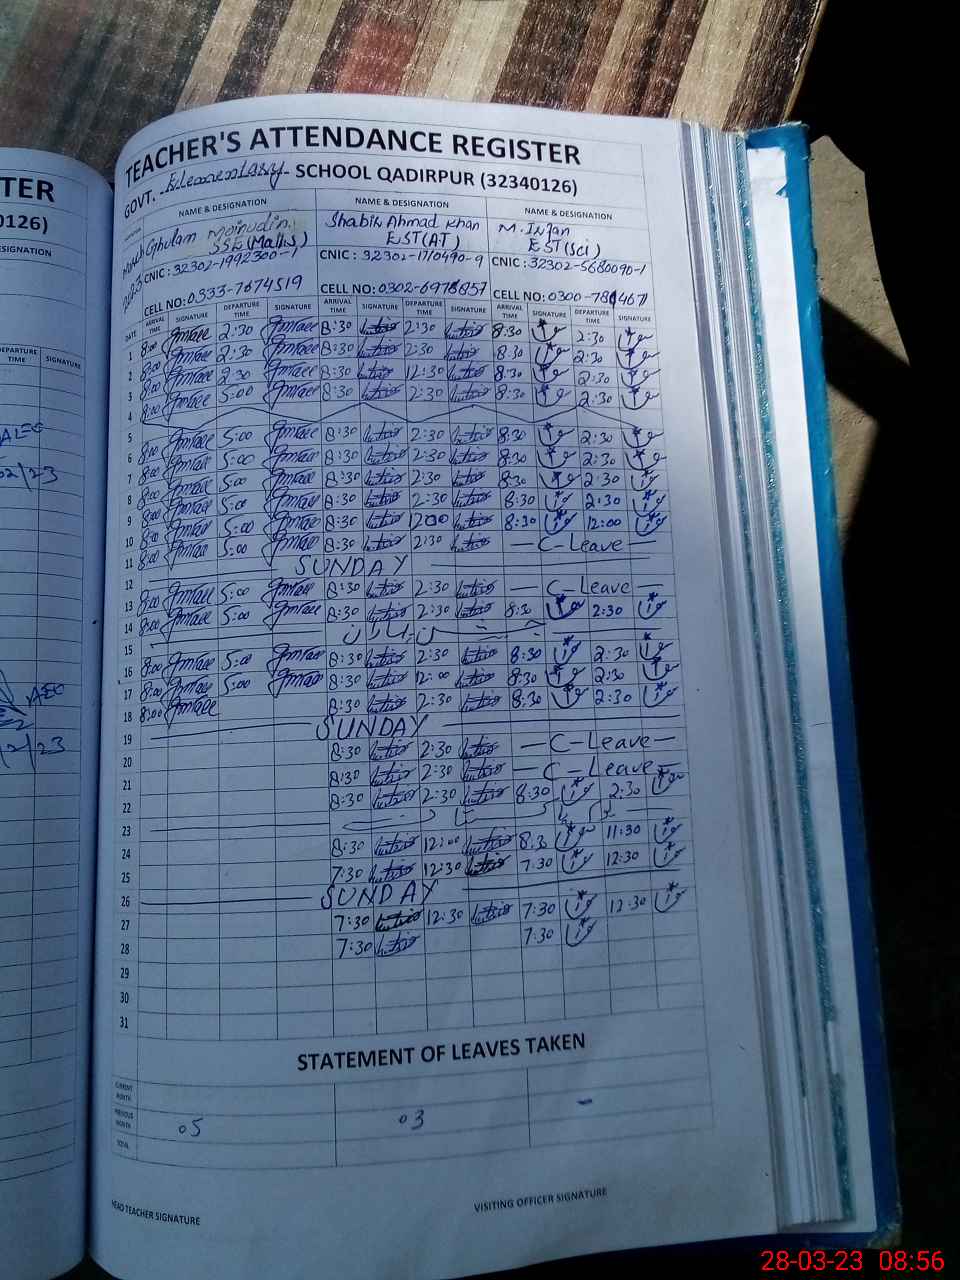 TER
0126)
SIGNATION
DEPARTURE TIME SIGNATURE
02/23
AEO
2/23
TEACHER'S ATTENDANCE REGISTER
GOVT. Elementary SCHOOL QADIRPUR (32340126)
NAME & DESIGNATION NAME & DESIGNATION NAME & DESIGNATION
Ghulam Moinudin. Shabir Ahmad Khan M. Irfan
SSE(Maths) EST(AT) EST(Sci)
March 2023
CNIC: 32302-1992300-1 CNIC: 32302-1710490-9 CNIC: 32302-5680090-1
CELL NO: 0333-7674519 CELL NO: 0302-6978857 CELL NO: 0300-
DATE ARRIVAL TIME SIGNATURE DEPARTURE TIME SIGNATURE ARRIVAL TIME SIGNATURE DEPARTURE TIME SIGNATURE ARRIVAL TIME SIGNATURE DEPARTURE TIME SIGNATURE
1 8:00 2:30 8:30 2:30 8:30 2:30
2 8:00 2:30 8:30 2:30 8:30 2:30
3 8:00 2:30 8:30 12:30 8:30 2:30
4 8:00 5:00 8:30 2:30 8:30 2:30
5
6 8:00 5:00 8:30 2:30 8:30 2:30
7 8:00 5:00 8:30 2:30 8:30 2:30
8 8:00 5:00 8:30 2:30 8:30 2:30
9 8:00 5:00 8:30 2:30 8:30 2:30
10 8:00 5:00 8:30 1200 8:30 12:00
11 8:00 5:00 8:30 2:30 - C-Leave -
12 SUNDAY
13 8:00 5:00 8:30 2:30 - C-Leave -
14 8:00 5:00 8:30 2:30 8:30 2:30
15
16 8:00 5:00 8:30 2:30 8:30 2:30
17 8:00 5:00 8:30 12:00 8:30 2:30
18 8:00 8:30 2:30 8:30 2:30
19 SUNDAY
20 8:30 2:30 - C-Leave -
21 8:30 2:30 - C-Leave -
22 8:30 2:30 8:30 2:30
23
24 8:30 12:00 8:30 11:30
25 7:30 12:30 7:30 12:30
26 SUNDAY
27 7:30 12:30 7:30 12:30
28 7:30 7:30
29
30
31
STATEMENT OF LEAVES TAKEN
CURRENT MONTH
PREVIOUS MONTH 05 03 -
TOTAL
HEAD TEACHER SIGNATURE VISITING OFFICER SIGNATURE
28-03-23 08:56